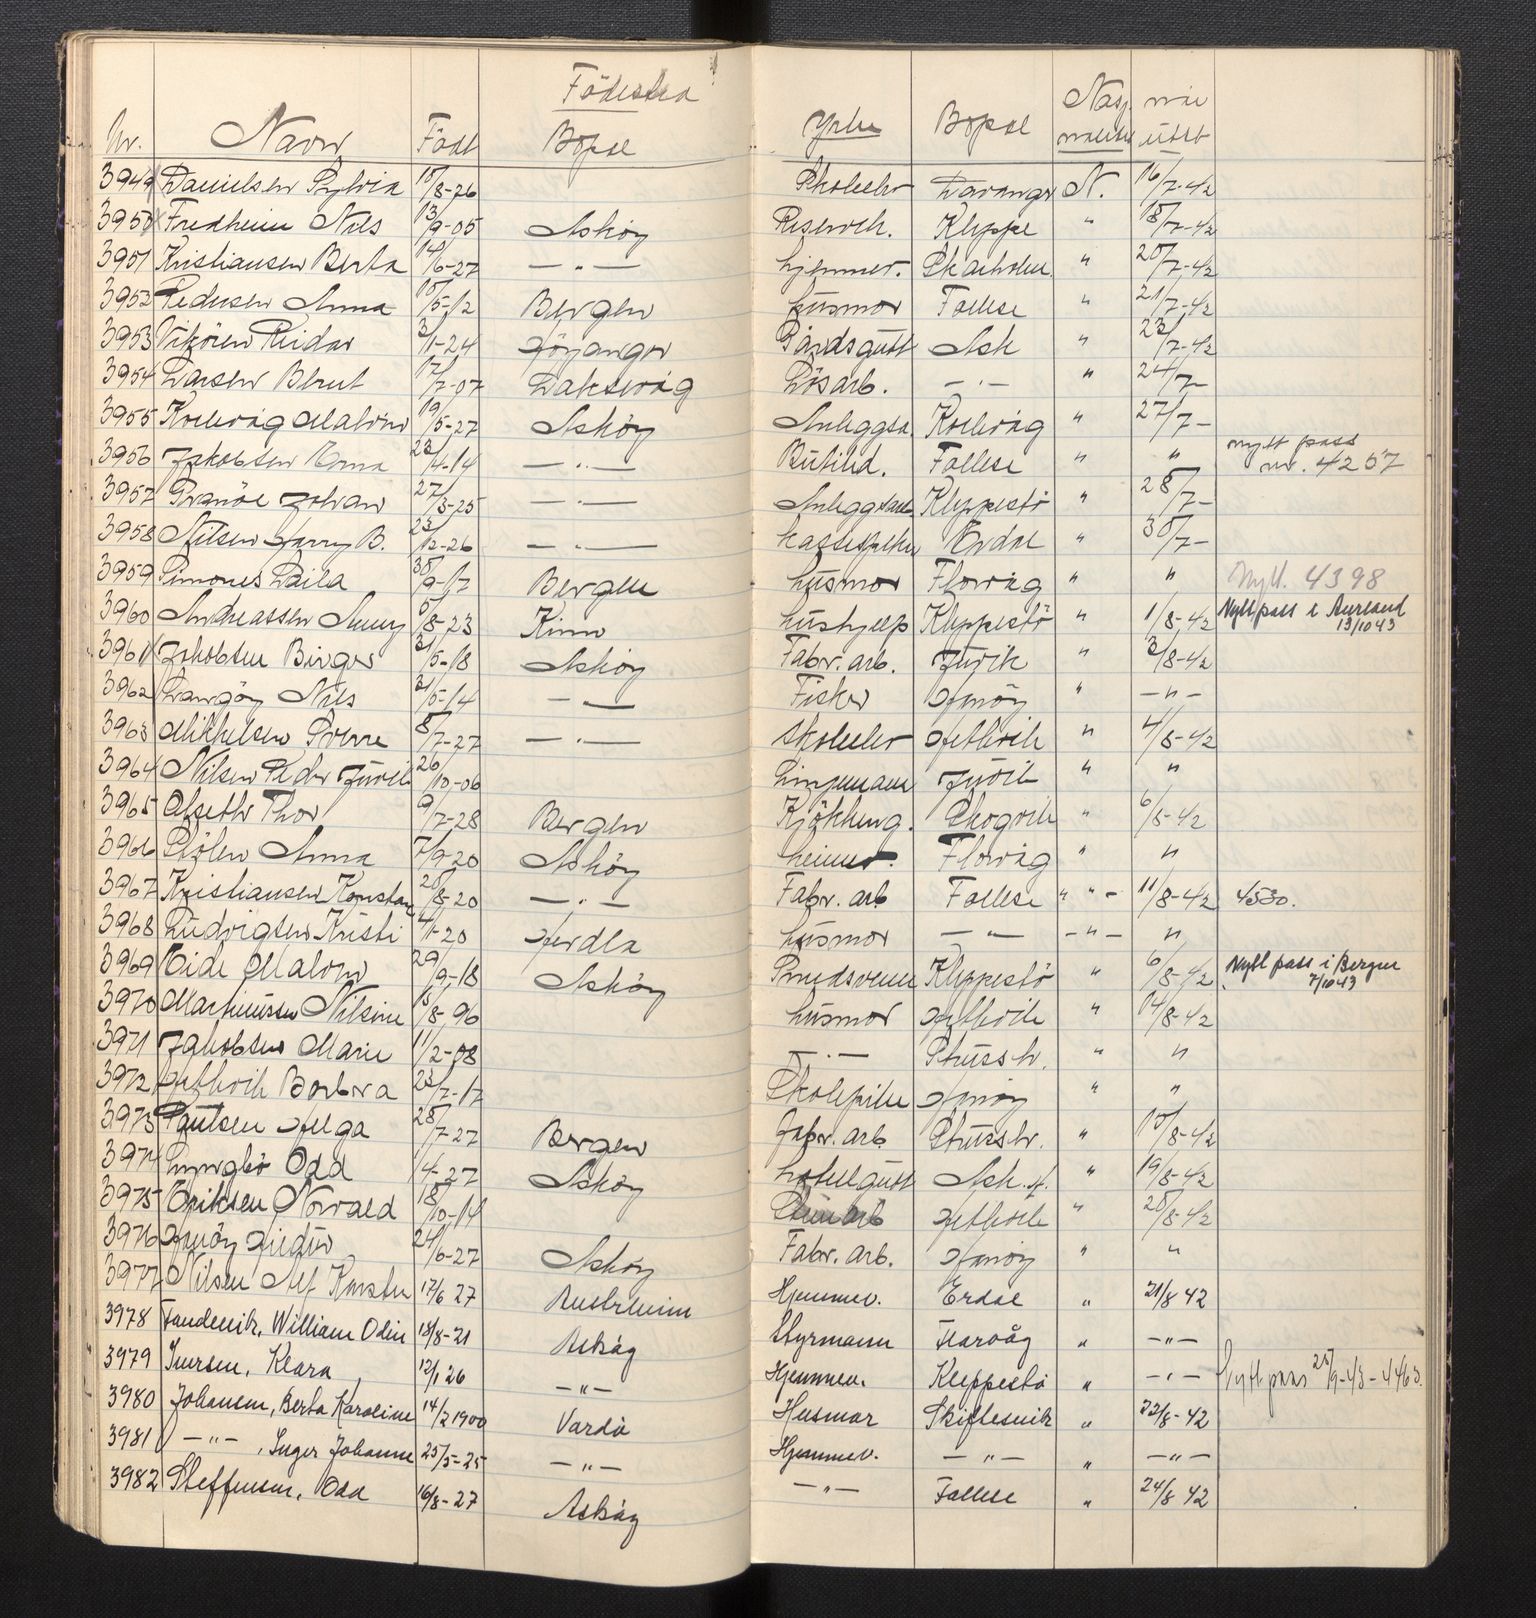 Nr. Navn Födt Födested Bopel Yrke Bopel Nasj. når utst
3949 Danielsen Sylvia 15/8-26 Skoleelev N. 16/7-42
3950 Fredheim Nils 13/9-05 Asköy Kleppe " 18/7-42
3951 Kristiansen Berta 14/6-27 — " — hjemmev. Skarholm. " 20/7-42
3952 Pedersen Anna 15/5-12 Bergen husmor Follese " 21/7-42
3953 Vikören Reidar 3/1-24 Höyanger Gårdsgutt Ask " 23/7-42
3954 Larsen Bernt 17/7-07 Laksevåg Lösarb. — " — " 24/7-
3955 Kollevåg Malvin 19/5-27 Asköy Anleggsa. Kollevåg " 27/7-
3956 Jakobsen Erna 23/4-14 — " — Butikd. Follese " " nytt pass nr. 4257
3957 Johan 27/3-25 — " — Anleggsarb. Kleppestö " 28/7-
3958 Nilsen Harry B. 23/12-26 — " — Erdal " 30/7-
3959 Simones Laila 30/9-17 Bergen husmor Florvåg " " Nytt. 4398
3960 Andreassen Sunny 5/8-23 Kinn hushjelp Kleppestö " 1/8-42 Nytt pass i Aurland 13/10 43
3961 Jakobsen Birger 31/5-18 Asköy Fabr. arb. Juvik " 3/8-42
3962 Langöy Nils 31/5-14 — " — Fisker Hanöy " — " —
3963 Mikkelsen Sverre 8/7-27 — " — Skoleelev Hetlevik " 4/8-42
3964 Nilsen Peder Juvik 26/10-06 Linjemann Juvik " "
3965 Olseth Thor 9/7-28 Bergen Kjökkeng. Skogvik " 6/8-42
3966 Anna 7/9-20 Asköy heimev. Florvåg " "
3967 Kristiansen Konstan 20/8-20 — " — Fabr. arb Follese " " - 11/8-42 4530.
3968 Ludvigsen Kristi 4/1-20 Herdla husmor — " — - " - "
3969 Eide Malvin 29/9-18 Asköy Kleppestö " 6/8-42 Nytt pass i Bergen 7/10 43
3970 Martinussen Nilsine 15/8-96 husmor Hetlevik " 14/8-42
3971 Jakobsen Marie 11/2-08 — " — Strussh. " "
3972 Hetlevik Borbra 23/7-17 Hanöy " "
3973 Paulsen Helga 28/7-27 Bergen Fabr. arb Strussh. " 15/8-42
3974 Lyngbö Odd 1/4-27 Asköy hotellgutt Ask. H. " 19/8-42
3975 Eriksen Norvald 18/10-14 Hetlevik " 20/8-42
3976 Hanöy 24/6-27 Asköy Fabr. arb. Hanöy " "
3977 Nilsen Alf Karsten 17/6 27 Austrheim Hjemmev. Erdal " 21/8 42
3978 Tandevik, William Odin 18/8-21 Askøy Styrmann Florvåg " — " —
3979 Iversen, Klara 12/1 26 — " — Hjemmev. Kleppestø " — " — Nytt pass 25/9-43 - 4463.
3980 Johansen, Berta Karoline 14/2 1900 Vardø Husmor Skiftesvik " 22/8-42
3981 — " — , Inger Johanne 25/5-25 — " — Hjemmev. — " — " — " —
3982 Steffensen, Odd 16/8-27 Askøy — " — Follese " 24/8 42